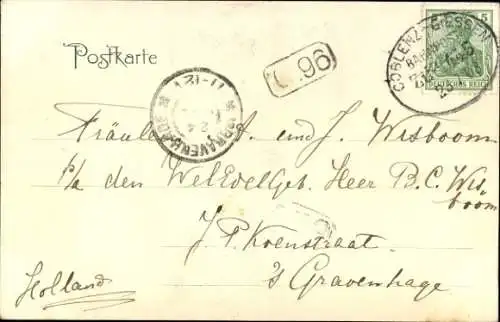 Postkarte
96
5
DEUTSCHES REICH
COBLENZ-GIESSEN
BAHNPOST
GRAVENHAGE
Fräulein A. und J. Wisboom
p/a den WelEdelGeb. Heer B.C. Wis-
boom
J. P. Koenstraat
's Gravenhage
Holland